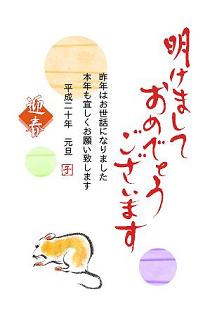 明けまして
おめでとう
ございます
昨年はお世話になりました
本年も宜しくお願い致します
平成二十年　元旦
子
迎春